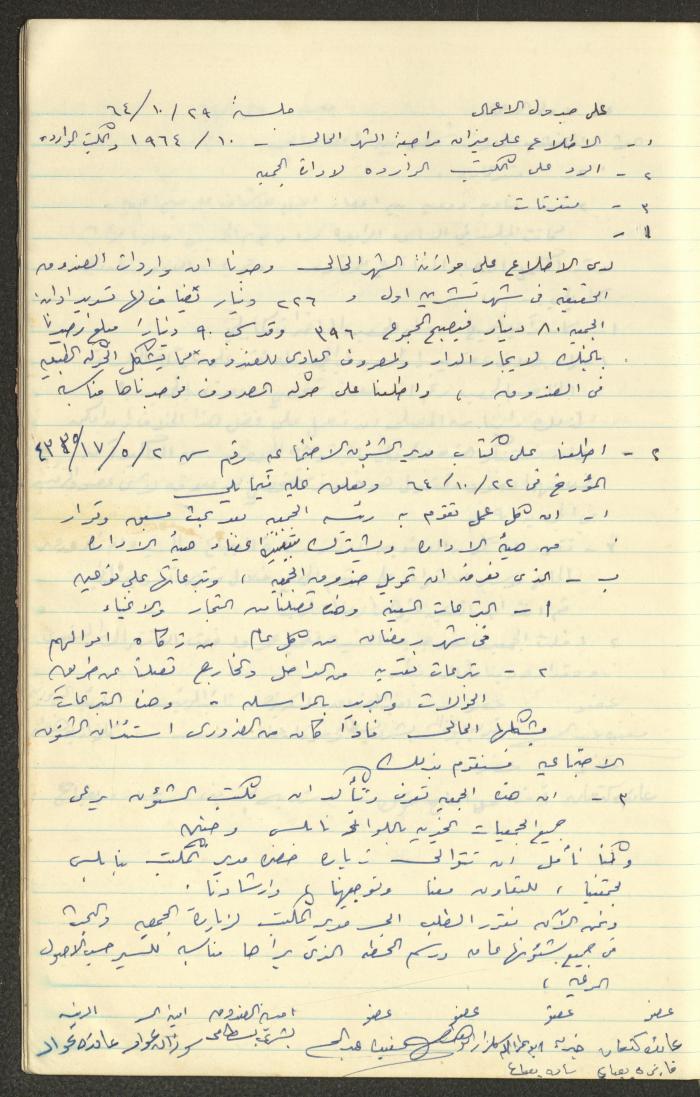 على جدول الاعمال جلسة ٢٩/١٠/٦٤
١- الاطلاع على ميزان مراجعة الشهر الحالي - ١٠/١٩٦٤ والكتب الوارده
٢- الرد على الكتب الوارده لادارة الجمعيه
٣- متفرقات
١-
لدى الاطلاع على موازنة الشهر الحالي وجدنا ان واردات الصندوق
الحقيقية في شهر تشرين اول ٢٢٦ دينار تضاف لها تسديد ادانة
الجمعيه ٨٠ دينار فيصبح المجموع ٣٩٦ وقدسحب ٩٠ دينارا مبلغ رصيدنا
بالبنك لايجار الدار والمصروف العادى للصندوق مما يشكل الحركه الطبيعيه
في الصندوق ، واطلعنا على حركة المصروف فوجدناها مناسبه
٢- اطلعنا على كتاب مدير الشؤون الاجتماعيه رقم س ٢/٥/١٧/
المؤرخ في ٢٢/١٠/٦٤ ونعلق عليه فيما يلي
١- ان كل عمل تقوم به رئيسه الجمعيه بعد بحث مسبق وقرار
من هيئة الادارة ويشترك اعضاء هيئة الادارة
ب- الذى نعرفه ان تمويل صندوق الجمعيه ، وتبرعاتها على نوعين
١- التبرعات العينيه وهذه تصلنا من التجار والاغنياء
في شهر رمضان من كل عام من زكاة اموالهم
٢- تبرعات نقديه من الداخل والخارج تصلنا عن طريق
الحوالات والبريد بالمراسله - وهذه التبرعات
بشكلها الحالي فاذا كان من الضرورى استئذان الشؤون
الاجتماعيه فسنقوم بذلك
٣- ان هذه الجمعيه تعرف وتتأكد ان مكتب الشؤون يرعى
جميع الجمعيات الخيريه باللواء نابلس وجنين
وكنا نأمل ان تتوالى زيارة حضرة مدير المكتب بنابلس
لجمعيتنا ، للتعاون معنا وتوجيهنا وارشادنا .
ونحن الآن نقرر الطلب الى مدير المكتب لزيارة الجمعيه والبحث
في جميع شئونها عامه ورسم الخطه الذى يراها مناسبه للسير حسب الاصول
المرعيه ،
عضو عضو عضو عضو امينة الصندوق امينة السر الرئيسه
عائده كنعان